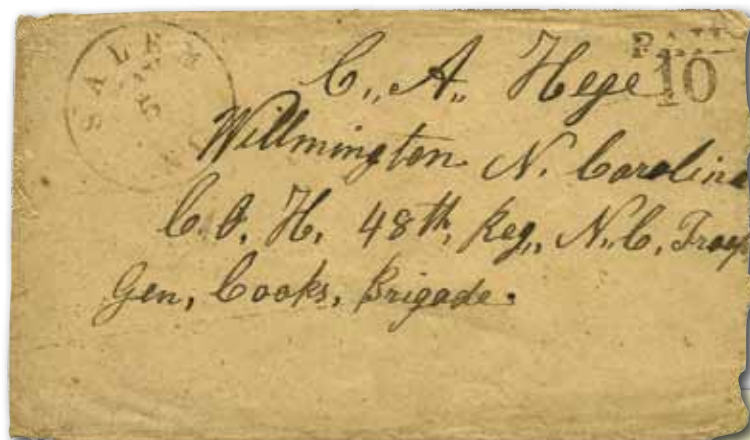 SALEM
N.C.
PAID
10
C,, A,, Hege
Willmington N. Carolina
C.O. H, 48th, Reg,, N.C, Troops
Gen, Cooks, Brigade.